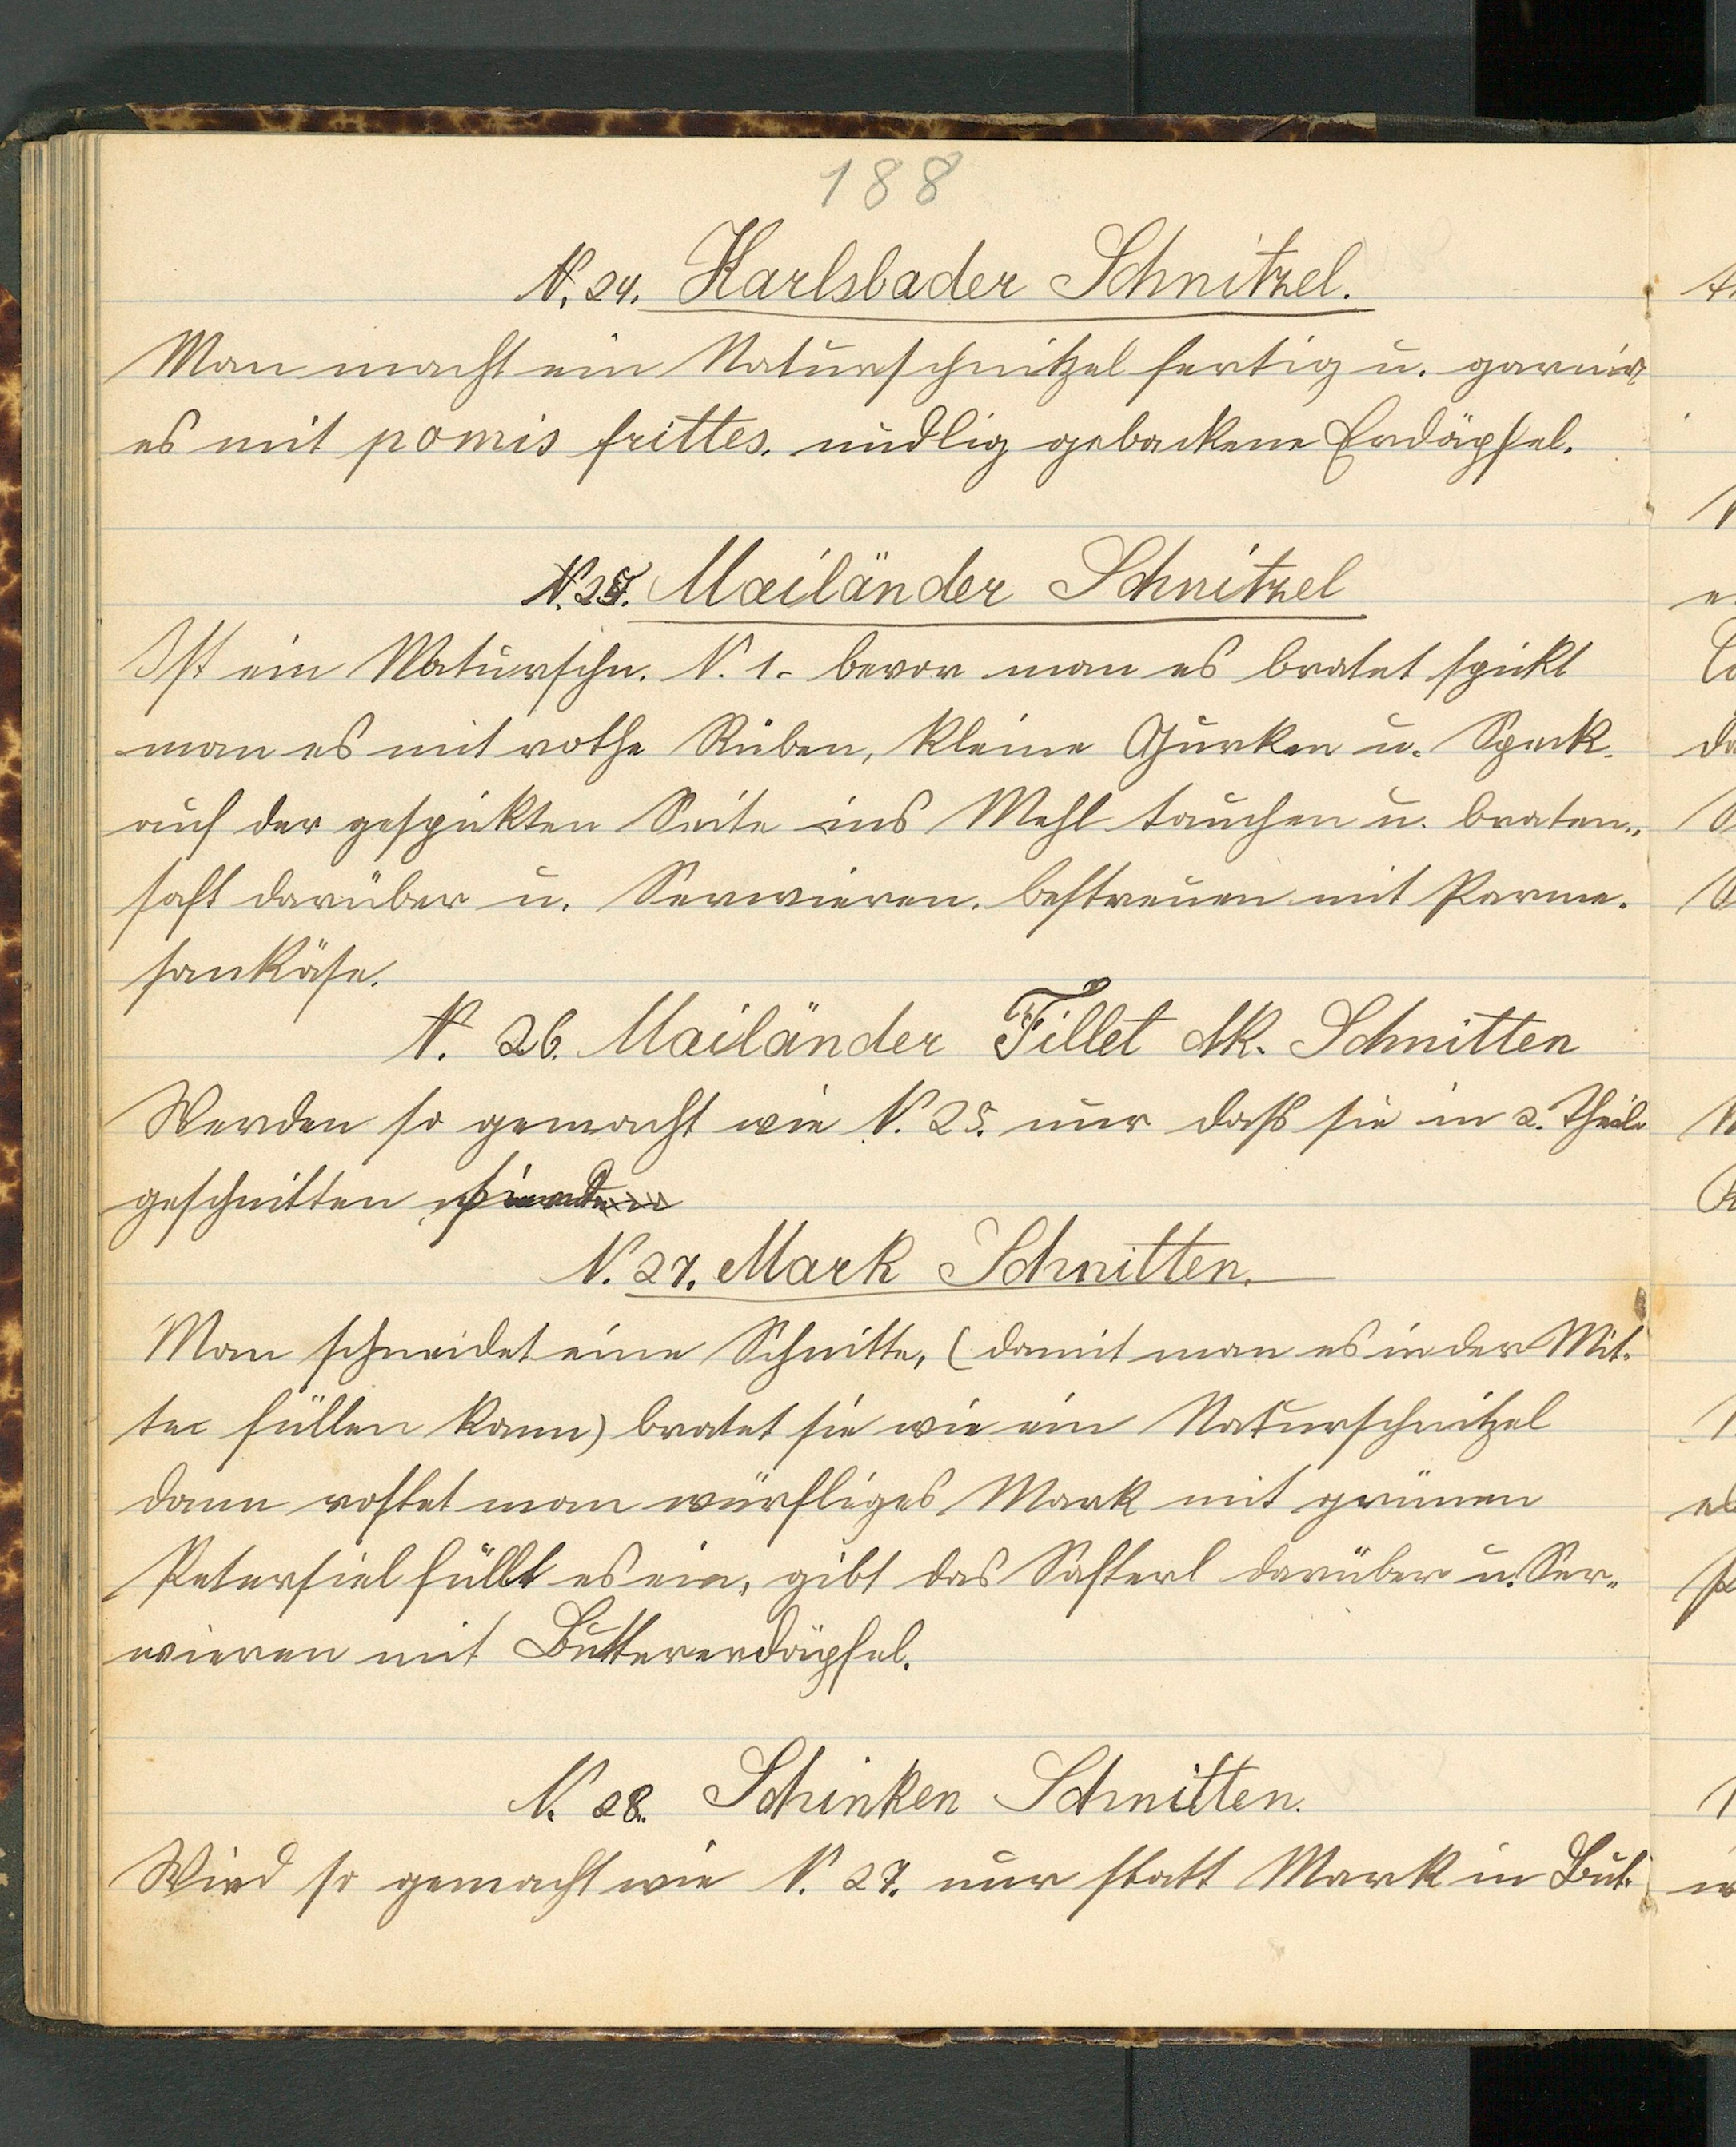 188
N. 24. Karlsbader Schnitzel.
Man macht ein Naturschnitzel fertig u. garnirt
es mit pomis frittes. nudlig gebackene Erdäpfel.
N. 25. Mailänder Schnitzel
Ist ein Naturschn. N. 1. bevor man es bratet spickt
man es mit rothe Rüben, kleine Gurken u. Speck.
auf der gespickten Seite ins Mehl tauchen u. braten„
saft darüber u. Servieren. bestreuen mit Parme.
sankäse.
N. 26. Mailänder Fillet Schnitten
Werden so gemacht wie N. 25. nur daß sie in 2. Theile
geschnitten
N. 27. Mark Schnitten.
Man schneidet eine Schnitte, (damit man es in der Mit.
te füllen kann) bratet sie wie ein Naturschnitzel
dann rostet man würfliges Mark mit grünen
Petersiel füllt es ein, gibt das Safterl darüber u. Ser„
wieren mit Buttererdäpfel.
N. 28. Schinken Schnitten.
Wird so gemacht wie N. 27. nur statt Mark in But.